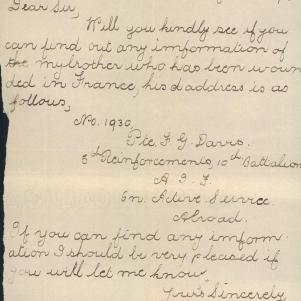 Dear Sir,
Will you kindly see if you
can find out any imformation of
the my brother who has been woun
ded in France, his d address is as
follows,
No. 1930,
Pte. F. G. Davis.
5th Reinforcements, 10th Battalion
A. I. F.
On Active Service.
Abroad.
If you can find any imform
ation I should be very pleased if
you will let me know.
Yours Sincerely